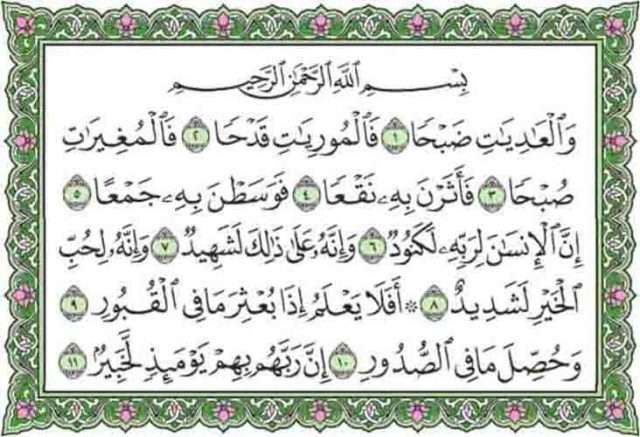 بِسْمِ اللَّهِ الرَّحْمَٰنِ الرَّحِيمِ
وَالْعَادِيَاتِ ضَبْحًا ١ فَالْمُورِيَاتِ قَدْحًا ٢ فَالْمُغِيرَاتِ
صُبْحًا ٣ فَأَثَرْنَ بِهِ نَقْعًا ٤ فَوَسَطْنَ بِهِ جَمْعًا ٥
إِنَّ الْإِنسَانَ لِرَبِّهِ لَكَنُودٌ ٦ وَإِنَّهُ عَلَىٰ ذَٰلِكَ لَشَهِيدٌ ٧ وَإِنَّهُ لِحُبِّ
الْخَيْرِ لَشَدِيدٌ ٨ ۞ أَفَلَا يَعْلَمُ إِذَا بُعْثِرَ مَا فِي الْقُبُورِ ٩
وَحُصِّلَ مَا فِي الصُّدُورِ ١٠ إِنَّ رَبَّهُم بِهِمْ يَوْمَئِذٍ لَّخَبِيرٌ ١١